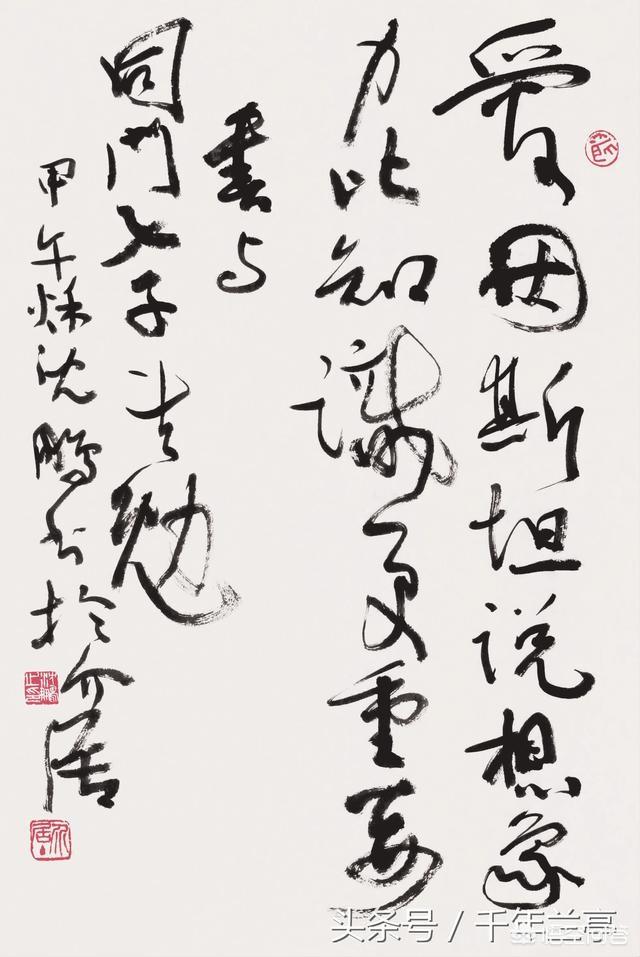 爱因斯坦说想象
力比知识更重要
书与
同門子共勉
甲午秌沈鹏书於介居
头条号 / 千年兰亭